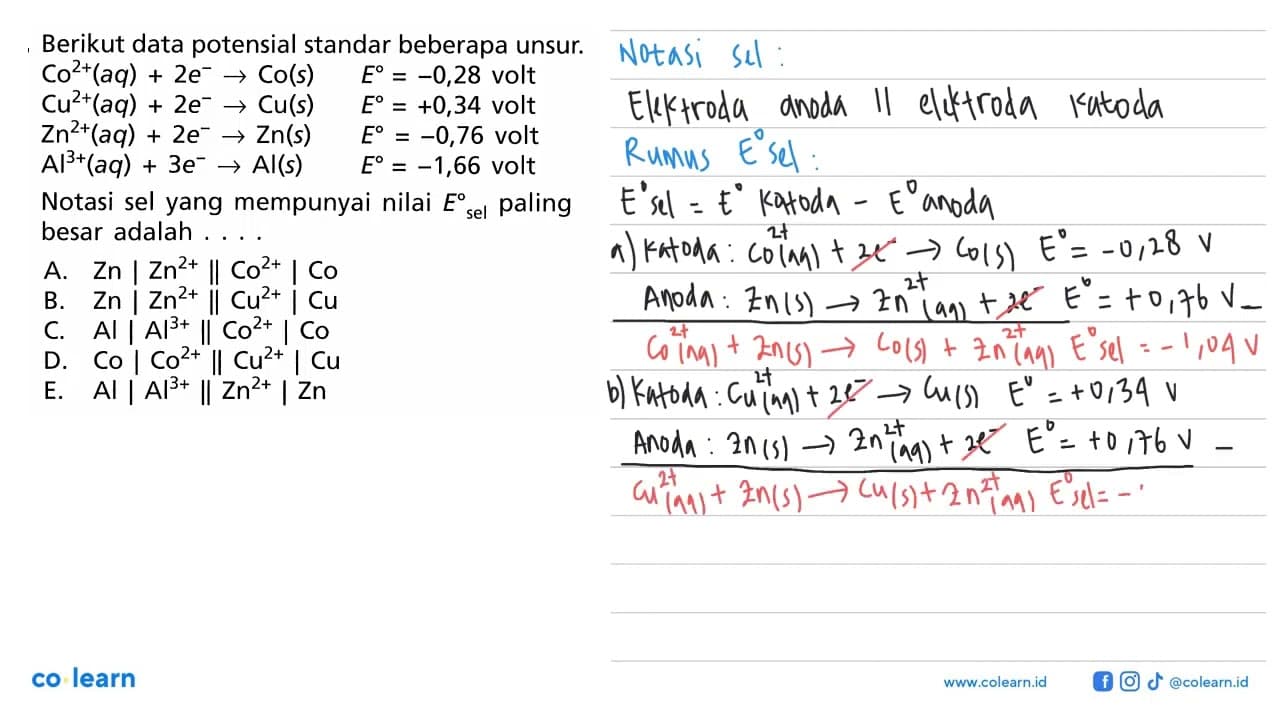 Berikut data potensial standar beberapa unsur.
Co²⁺(aq) + 2e⁻ → Co(s) E° = −0,28 volt
Cu²⁺(aq) + 2e⁻ → Cu(s) E° = +0,34 volt
Zn²⁺(aq) + 2e⁻ → Zn(s) E° = −0,76 volt
Al³⁺(aq) + 3e⁻ → Al(s) E° = −1,66 volt
Notasi sel yang mempunyai nilai E°sel paling
besar adalah . . . .
A. Zn | Zn²⁺ || Co²⁺ | Co
B. Zn | Zn²⁺ || Cu²⁺ | Cu
C. Al | Al³⁺ || Co²⁺ | Co
D. Co | Co²⁺ || Cu²⁺ | Cu
E. Al | Al³⁺ || Zn²⁺ | Zn
Notasi sel :
Elektroda anoda || elektroda katoda
Rumus E°sel :
E°sel = E° katoda − E° anoda
a) Katoda : Co²⁺(aq) + 2e⁻ → Co(s) E° = −0,28 V
Anoda : Zn(s) → Zn²⁺(aq) + 2e⁻ E° = +0,76 V −
Co²⁺(aq) + Zn(s) → Co(s) + Zn²⁺(aq) E°sel = −1,04 V
b) Katoda : Cu²⁺(aq) + 2e⁻ → Cu(s) E° = +0,34 V
Anoda : Zn(s) → Zn²⁺(aq) + 2e⁻ E° = +0,76 V −
Cu²⁺(aq) + Zn(s) → Cu(s) + Zn²⁺(aq) E°sel = −
co learn
www.colearn.id
@colearn.id